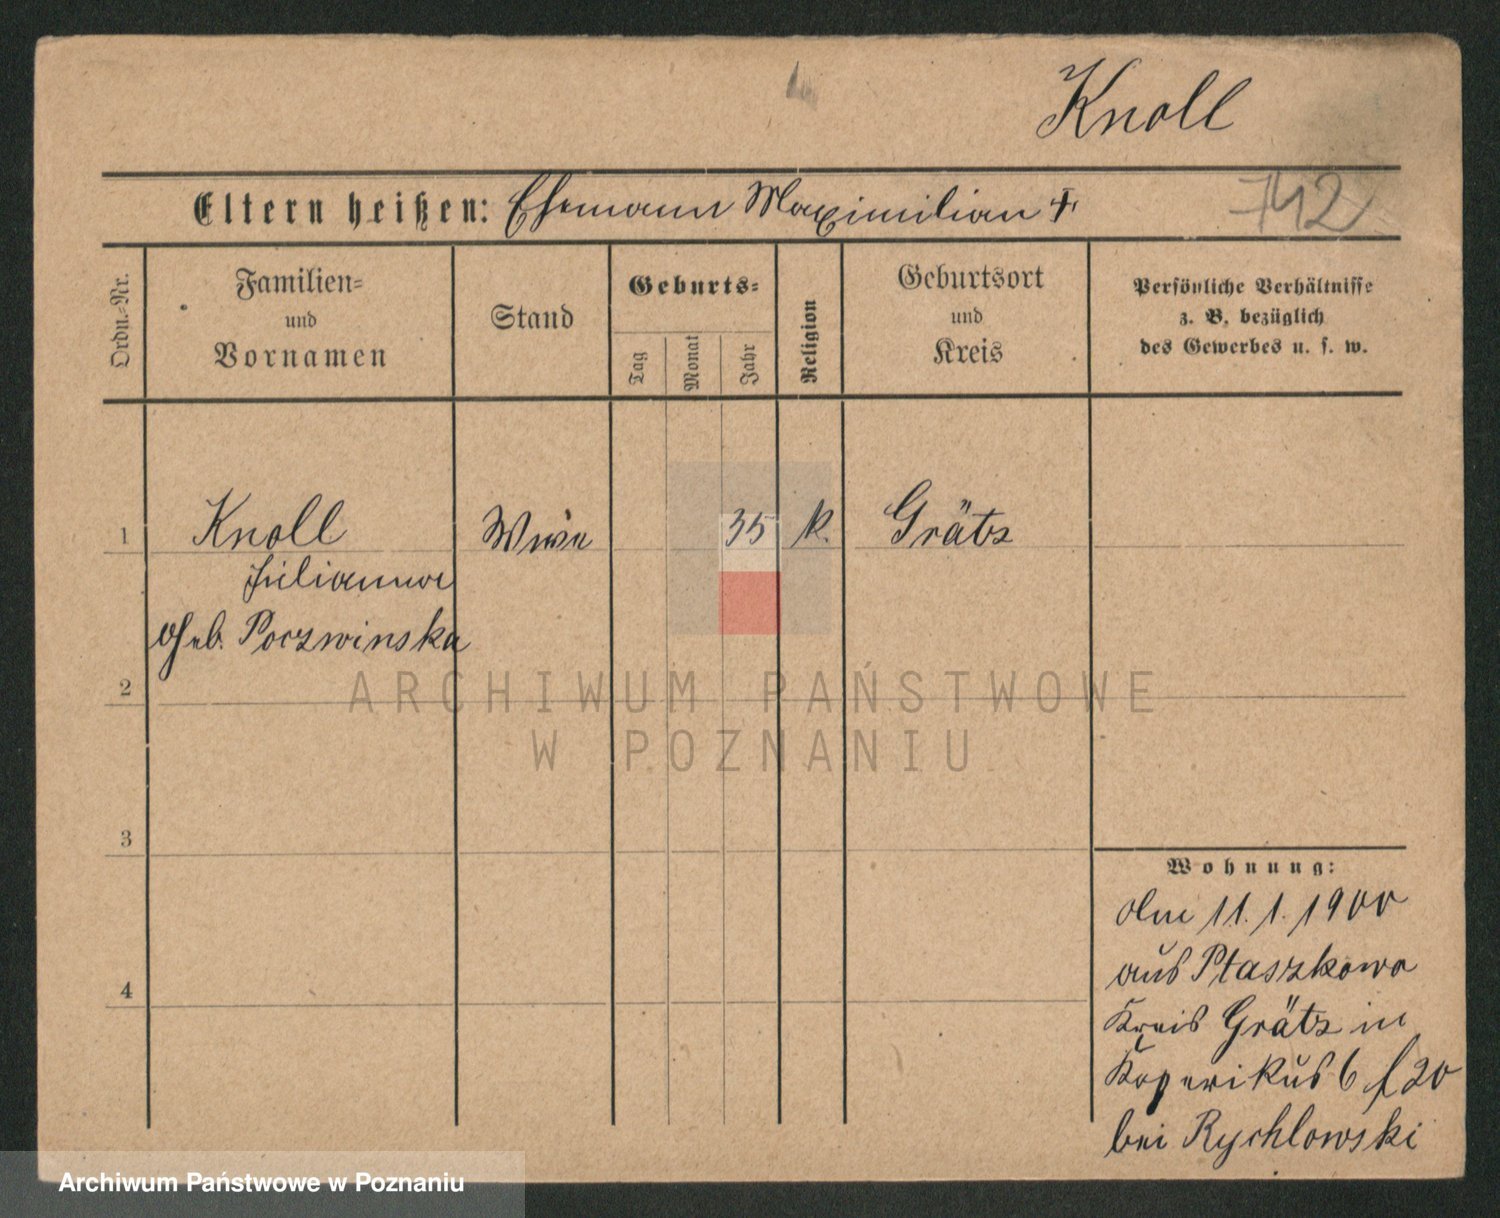 Knoll
Eltern heißen: Ehemann Maximilian +
742
Ordn.-Nr.
Familien-
und
Vornamen
Stand
Geburts-
Tag
Monat
Jahr
Religion
Geburtsort
und
Kreis
Persönliche Verhältnisse
z. B. bezüglich
des Gewerbes u. s. w.
1 Knoll Wwe 35 k. Grätz
Julianna
Geb. Poczwinska
2
ARCHIWUM PAŃSTWOWE
W POZNANIU
3
4
Wohnung:
Am 11.1.1900
aus Ptaszkowo
Kreis Grätz in
6 f 20
bei Rychlowski
Archiwum Państwowe w Poznaniu